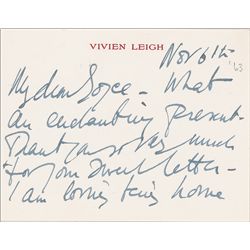 VIVIEN LEIGH
Nov 6th
'63
My dear Joyce – What
an enchanting present –
Thank you so very much
for your sweet letter –
I am loving being home